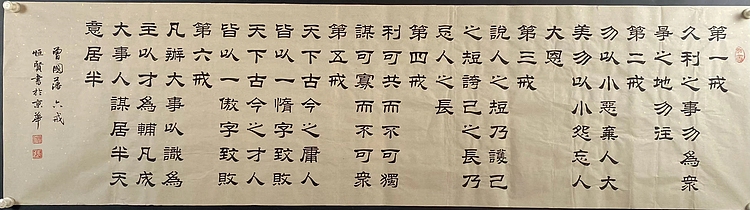 第一戒
久利之事勿為衆
爭之地勿往
第二戒
勿以小惡棄人大
美勿以小怨忘人
大恩
第三戒
說人之短乃護己
之短誇己之長乃
忌人之長
第四戒
利可共而不可獨
謀可寡而不可衆
第五戒
天下古今之庸人
皆以一惰字致敗
天下古今之才人
皆以一傲字致敗
第六戒
凡辦大事以識為
主以才為輔凡成
大事人謀居半天
意居半
曾國藩六戒
恒賢書於京華